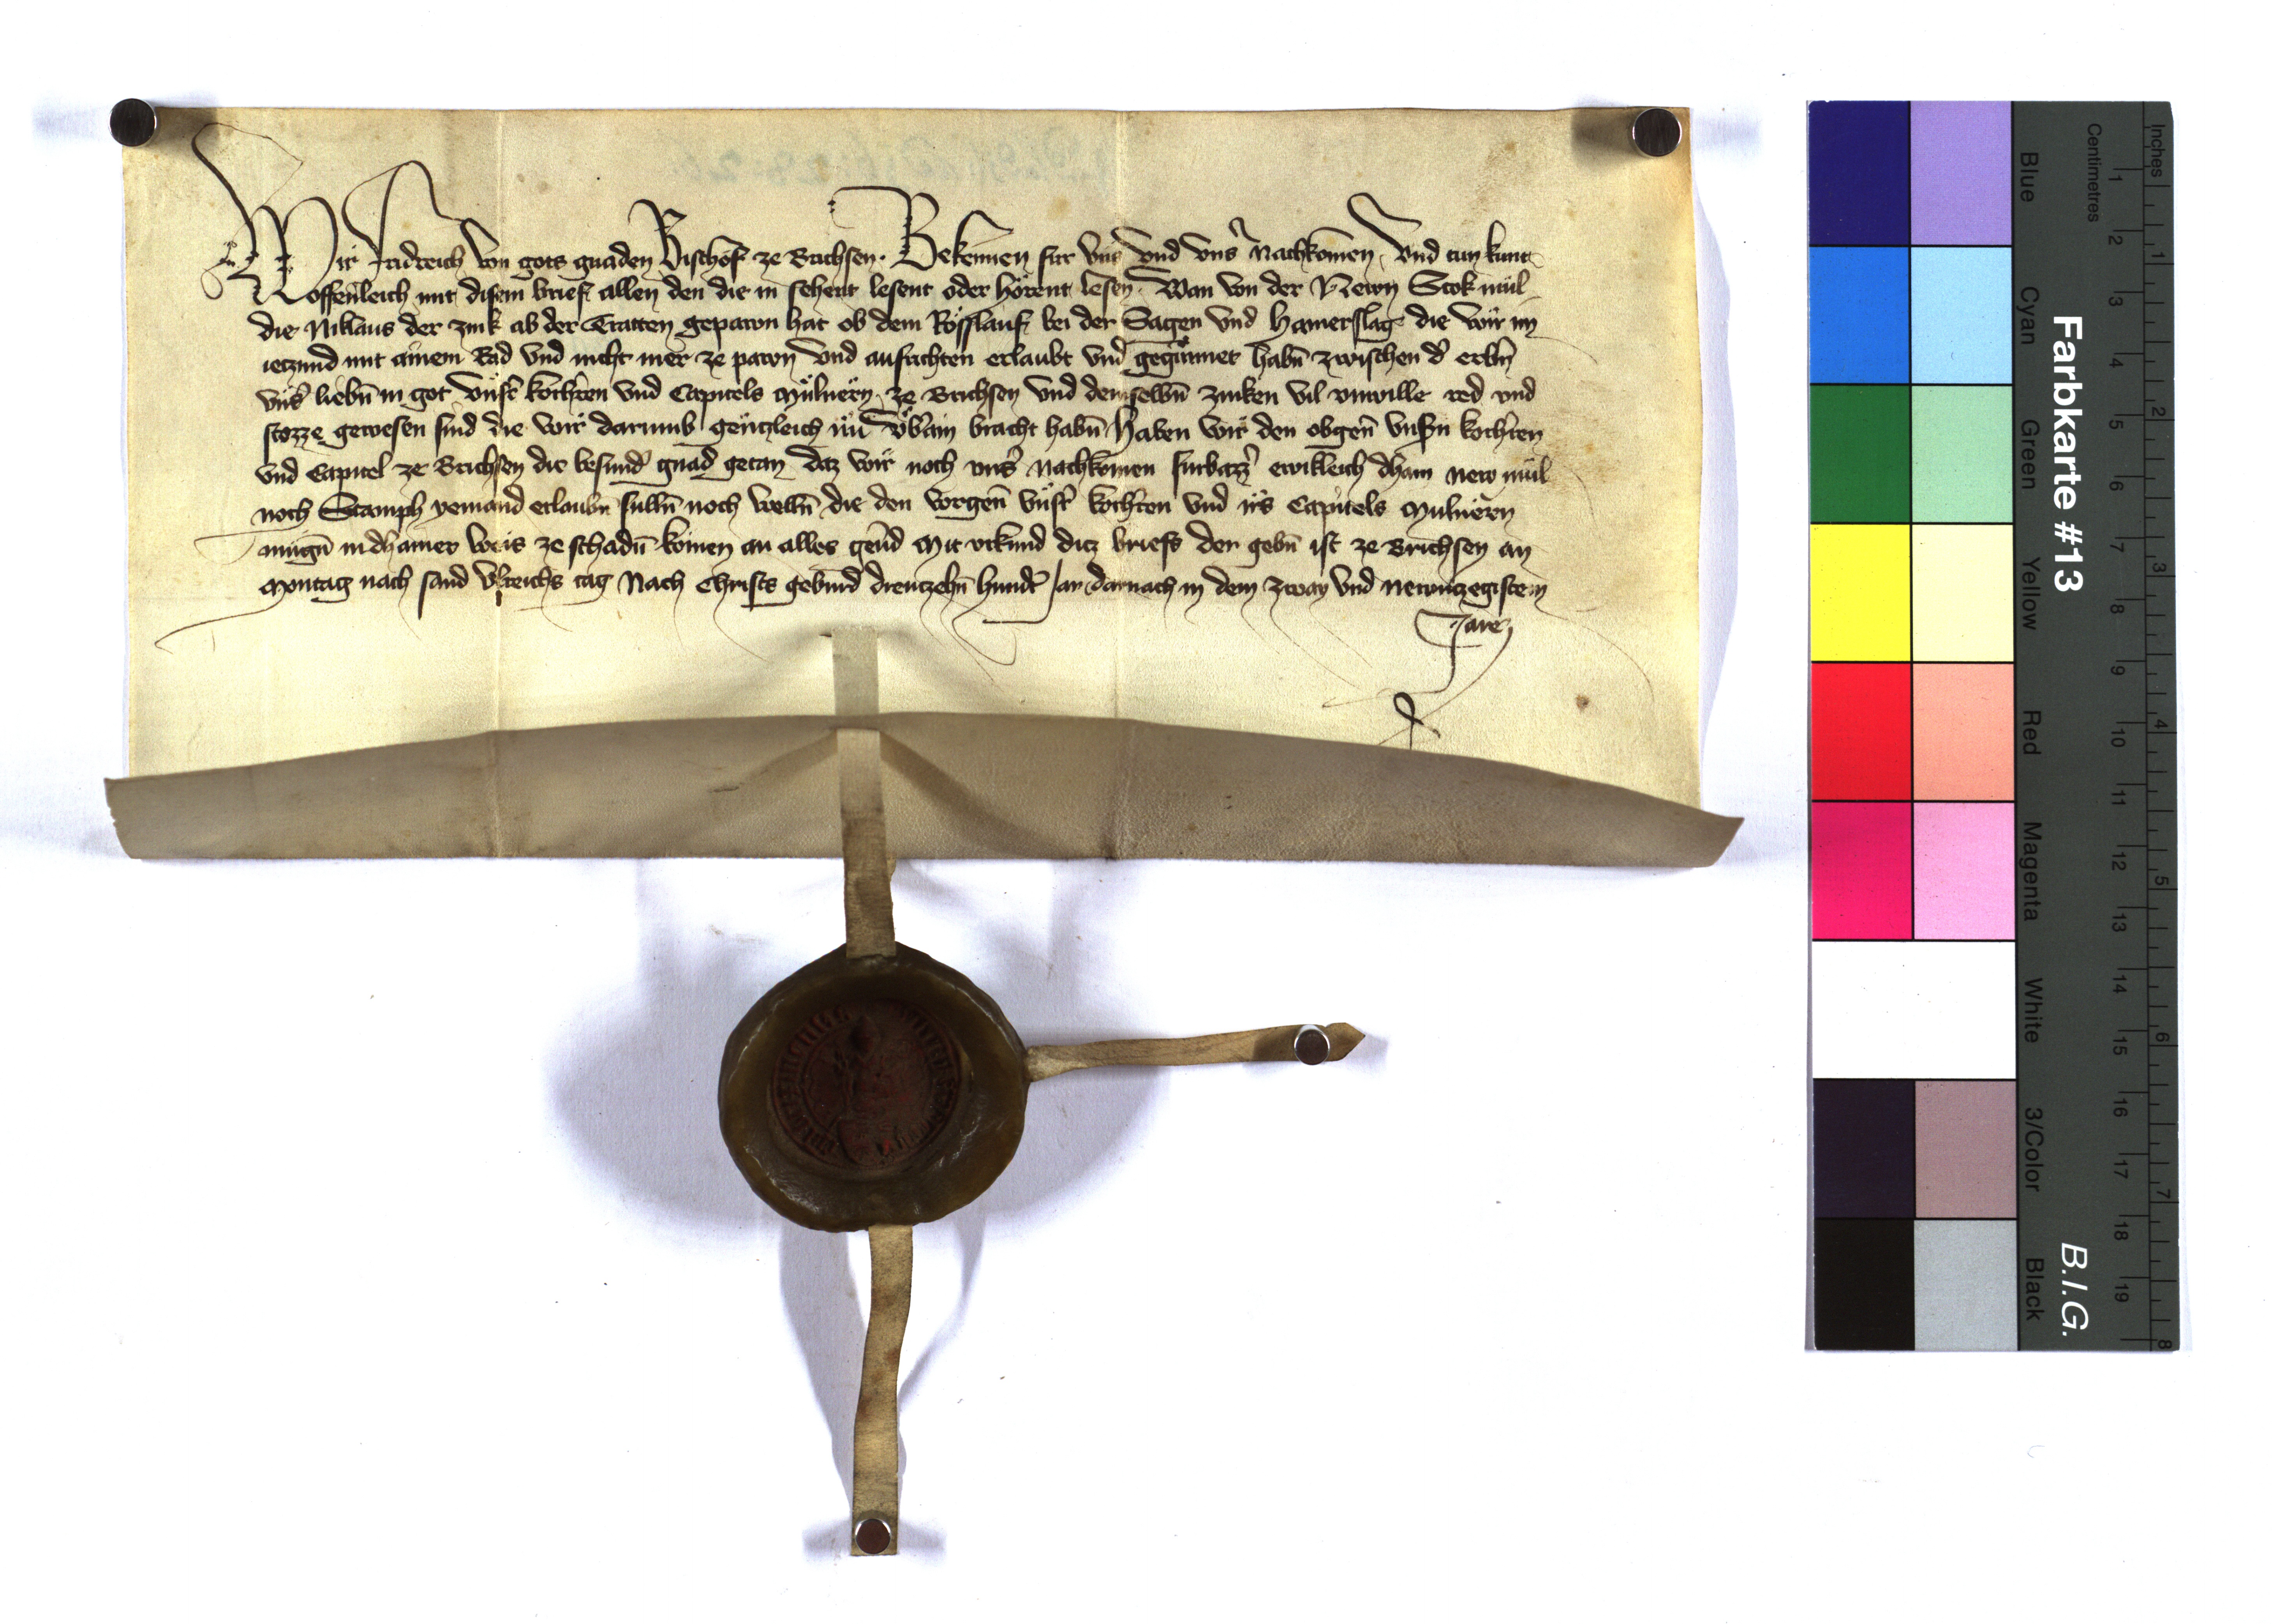 Wir Fridreich von gots gnaden Bischof ze Brichsen. Bekennen für vns vnd vnsʼ Nachkomen, Vnd tun kunt
offenleich mit disem brief allen den die in sehent lesent oder hörent lesen. Wan von der Newn Stokmül
die Niklaus der zink ab der Tratten gepawn hat ob dem Rösslauf bei der Sagen vnd Hamerslag die wir im
ietzund mit ainem Rad vnd nicht mer ze pawn vnd aufrichten erlaubt vnd gegünnet habn̄ zwischen dʼ erbn̄
vnsʼ liebn̄ in got vnsʼ korhʼren vnd Capitels Mülnern ze Brichsen vnd demselbn̄ zinken vil vnwille red vnd
stözze gewesen sind die wir darumb gentzleich nu vbʼain bracht habn̄ Haben wir den obgen̄ vnsn̄ korhʼren
vnd Capitel ze Brichsen die besundʼ gnad getan daz wir noch vnsʼ nachkomen furbazzʼ ewikleich dhain new mül
noch Stamph yemand erlaubn̄ sulln̄ noch welln̄ die den vorgen̄ vnsʼn korhʼren vnd irs Capitels Mulnern
mugn̄ in dhainer weis ze schadn̄ komen an alles geuʼd Mit vrkund ditz briefs der gebn̄ ist ze Brichsen an
Montag nach sand Vlreichs tag Nach Christs geburd dreutzehn̄ hundʼt Jar darnach in dem zway vnd Newntzegistem
Jare
Farbkarte #13
B.I.G.
Inches
Centimetres
Blue
Cyan
Green
Yellow
Red
Magenta
White
3/Color
Black
1 2 3 4 5 6 7 8 9 10 11 12 13 14 15 16 17 18 19
1 2 3 4 5 6 7 8